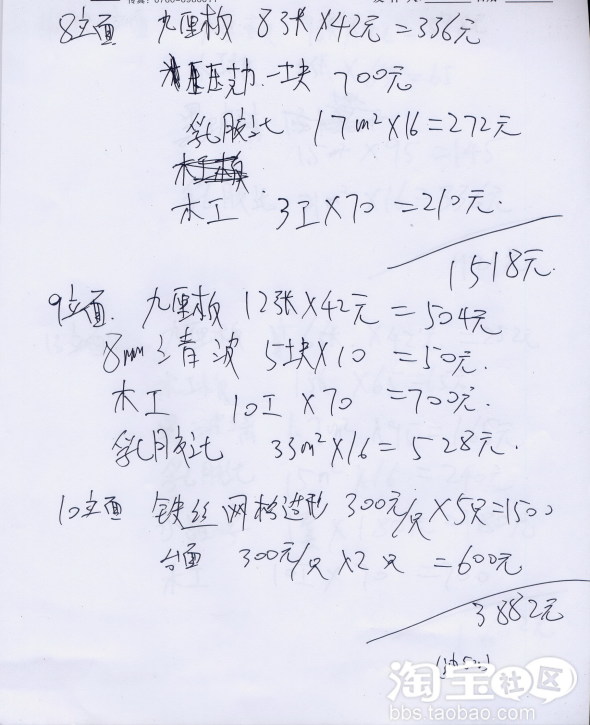 8立面 九厘板 8张×42元=336元
压克力一块 700元
乳胶漆 17m²×16=272元
木工 3工×70=210元.
1518元.
9立面. 九厘板 12张×42元=504元
8mm 清波 5块×10=50元.
木工 10工×70=700元.
乳胶漆 33m²×16=528元.
10立面 铁丝网格造形 300元/只×5只=1500
台面 300元/只×2只=600元
3882元
淘宝社区
bbs.taobao.com